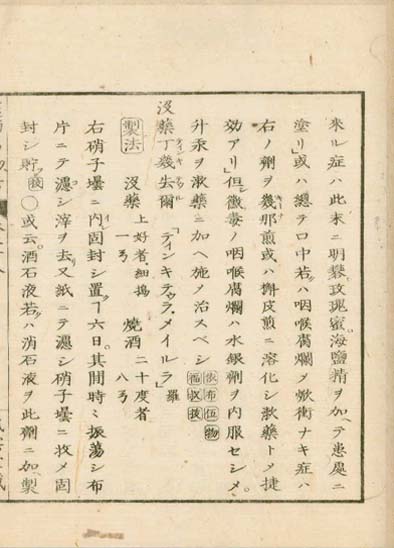 来ル症ハ此末ニ明礬玫瑰蜜海塩精ヲ加ヘテ患処ニ
塗リ或ハ總テ口中若クハ咽喉腐爛ヲ焮衝ナキ症ハ
右ノ剤ヲ幾那煎或ハ槲皮煎ニ溶化シ漱薬トメ捷
効アリ但シ黴毒ノ咽喉腐爛ハ水銀剤ヲ内服セシメ
升汞ヲ漱薬ニ加ヘ施メ治スベシ 依布伍物
没薬丁幾去爾 チンキチュル 「ティンキテュラ・メイルラ」羅
製法 没薬 上好者細搗 一ヲ 焼酒 二十度者 八ヲ
右硝子壜ニ内レ固封シ置ヿ六日其間時々振蕩シ布
片ニテ濾シ滓ヲ去リ又紙ニテ濾シ硝子壜ニ收メ固
封シ貯フ ○或云酒石液若クハ消石液ヲ此剤ニ加ヘ製